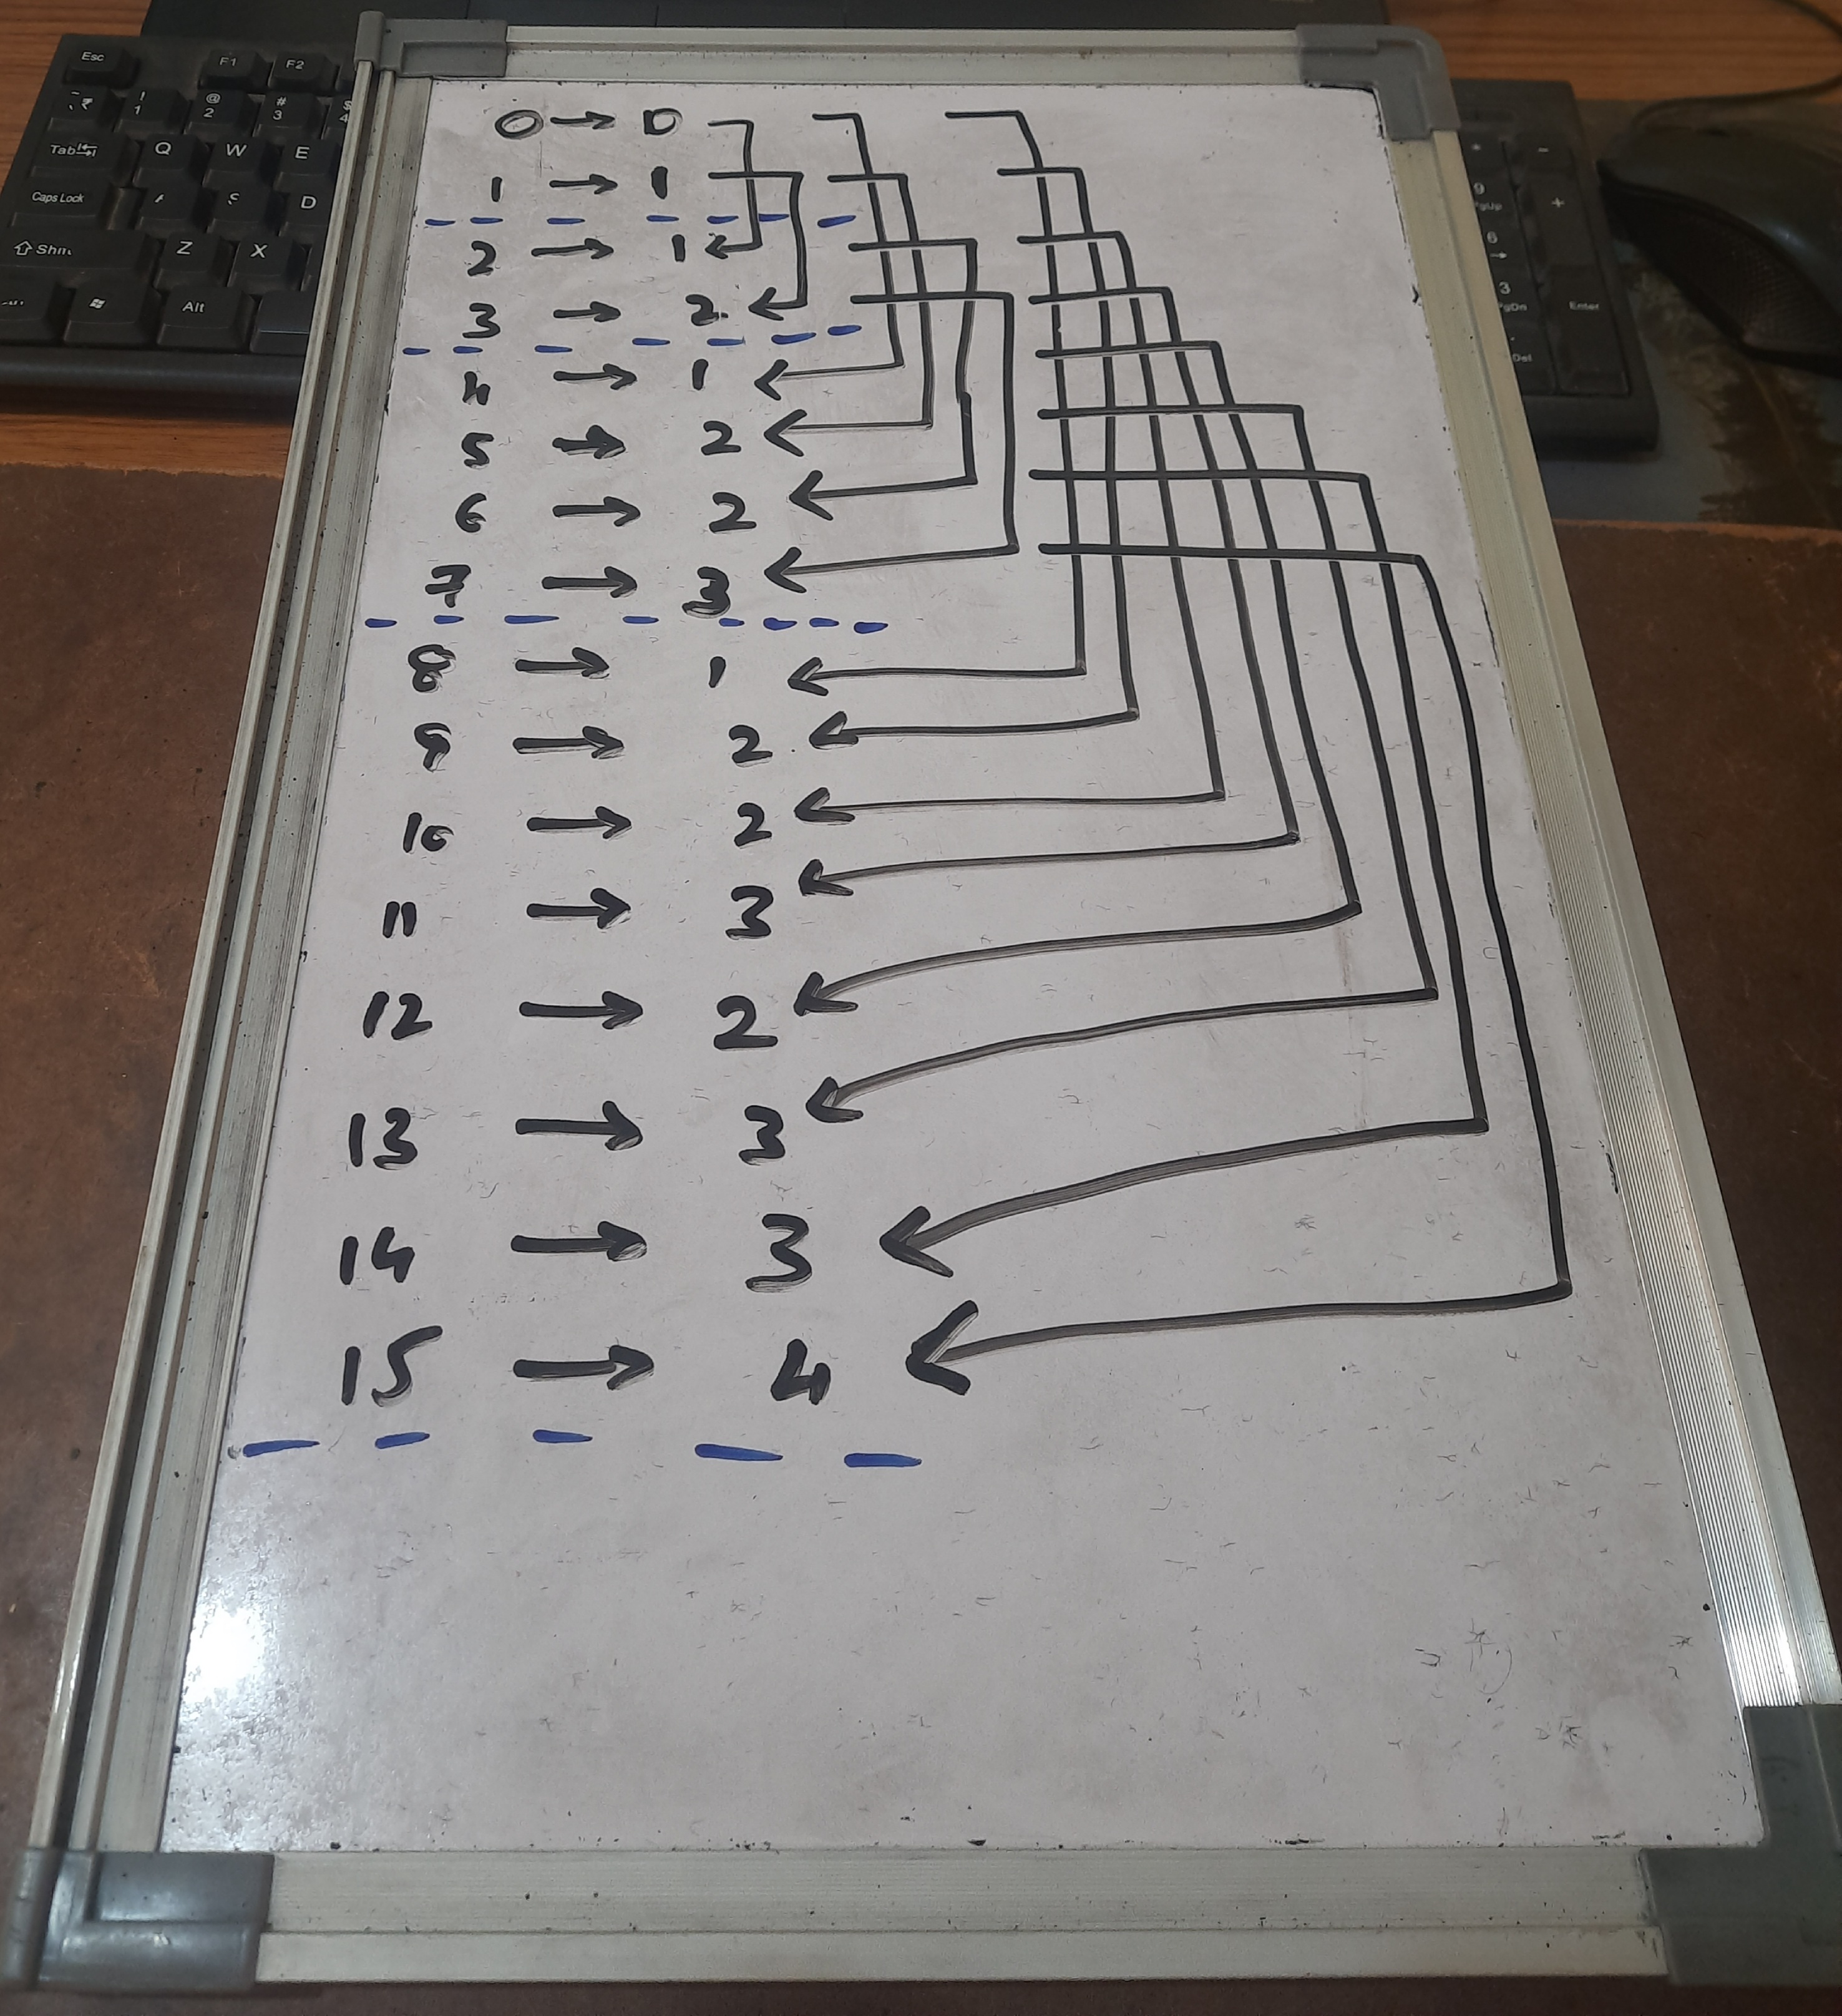 0 → 0
1 → 1
2 → 1
3 → 2
4 → 1
5 → 2
6 → 2
7 → 3
8 → 1
9 → 2
10 → 2
11 → 3
12 → 2
13 → 3
14 → 3
15 → 4
Esc F1 F2
! 1 @ 2 # 3 $ 4
Tab Q W E
Caps Lock D
Z X
Alt
-
9 PgUp +
6 →
3 PgDn Enter
. Del